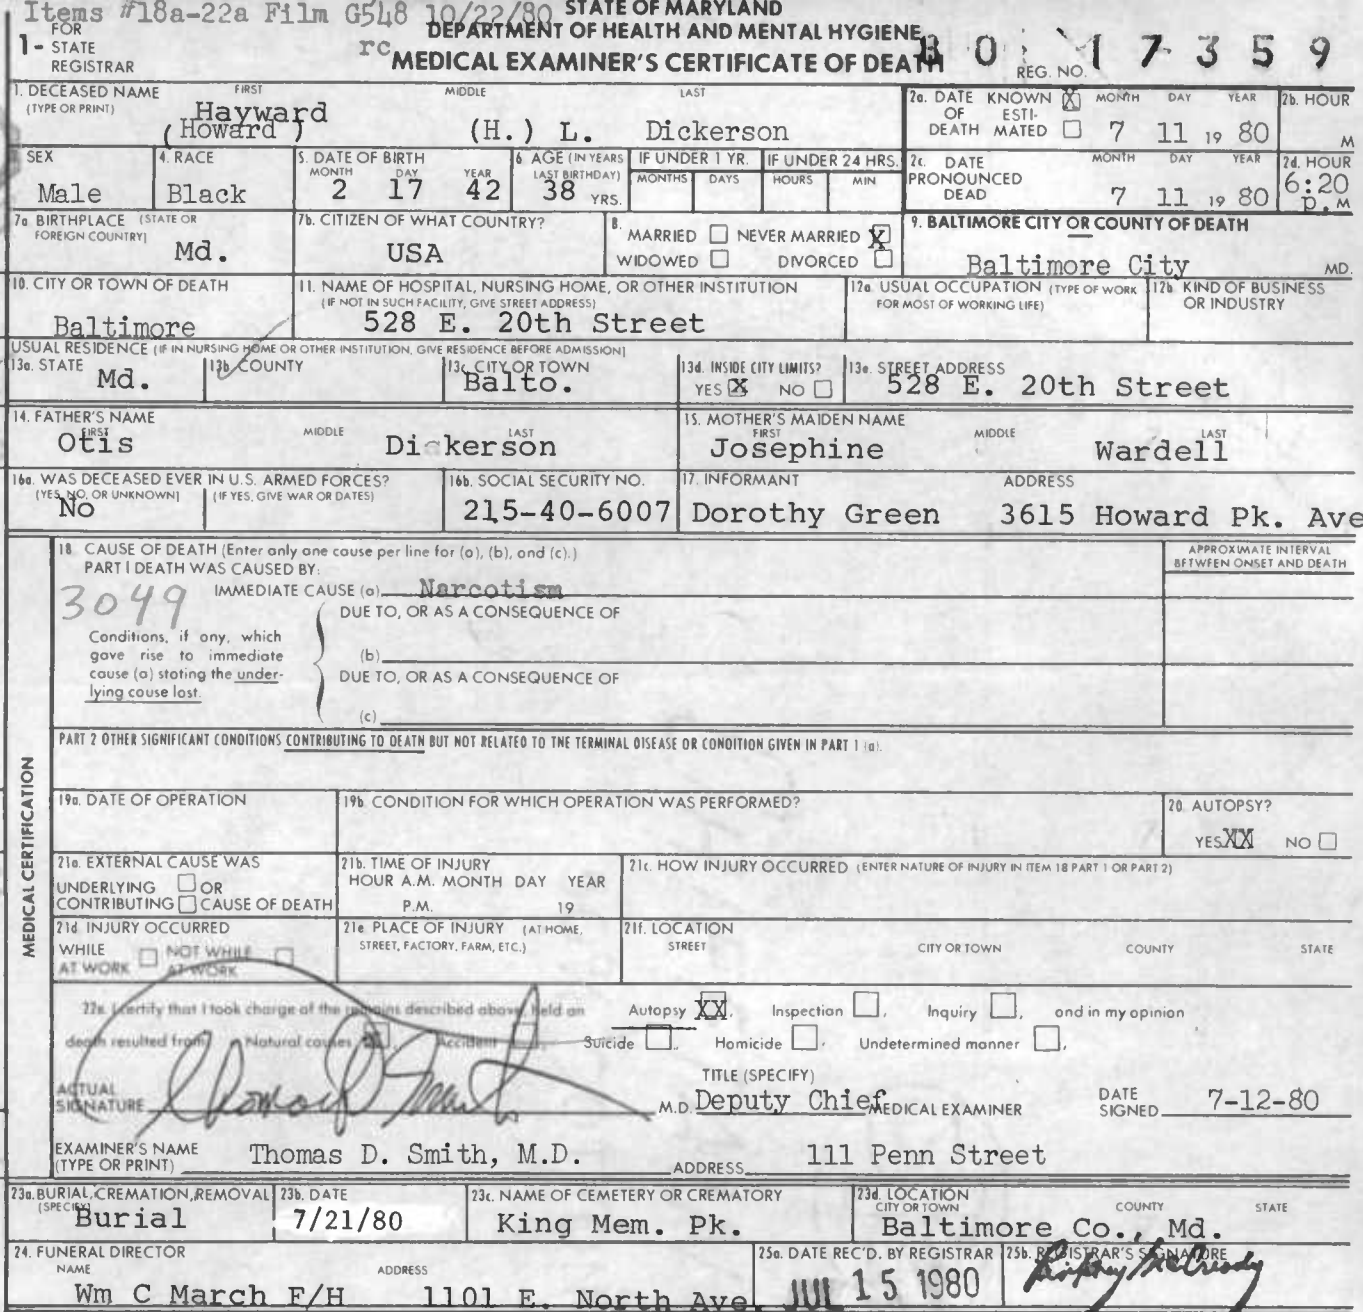 Items #18a-22a Film G548 10/22/80 STATE OF MARYLAND
FOR DEPARTMENT OF HEALTH AND MENTAL HYGIENE
1- STATE REGISTRAR rc MEDICAL EXAMINER'S CERTIFICATE OF DEATH REG. NO. 80 17359
1. DECEASED NAME (TYPE OR PRINT) FIRST MIDDLE LAST
Hayward
(Howard) (H.) L. Dickerson
2a. DATE OF DEATH KNOWN X ESTIMATED MONTH DAY YEAR 7 11 19 80
2b. HOUR M
3. SEX Male
4. RACE Black
5. DATE OF BIRTH MONTH DAY YEAR 2 17 42
6 AGE (IN YEARS LAST BIRTHDAY) 38 YRS.
IF UNDER 1 YR. MONTHS DAYS
IF UNDER 24 HRS. HOURS MIN
2c. DATE PRONOUNCED DEAD MONTH DAY YEAR 7 11 19 80
2d. HOUR 6:20 P.M
7a BIRTHPLACE (STATE OR FOREIGN COUNTRY) Md.
7b. CITIZEN OF WHAT COUNTRY? USA
8. MARRIED NEVER MARRIED X
WIDOWED DIVORCED
9. BALTIMORE CITY OR COUNTY OF DEATH
Baltimore City MD.
10. CITY OR TOWN OF DEATH Baltimore
11. NAME OF HOSPITAL, NURSING HOME, OR OTHER INSTITUTION
(IF NOT IN SUCH FACILITY, GIVE STREET ADDRESS)
528 E. 20th Street
12a. USUAL OCCUPATION (TYPE OF WORK FOR MOST OF WORKING LIFE)
12b. KIND OF BUSINESS OR INDUSTRY
USUAL RESIDENCE (IF IN NURSING HOME OR OTHER INSTITUTION, GIVE RESIDENCE BEFORE ADMISSION)
13a. STATE Md.
13b. COUNTY
13c. CITY OR TOWN Balto.
13d. INSIDE CITY LIMITS? YES X NO
13e. STREET ADDRESS 528 E. 20th Street
14. FATHER'S NAME FIRST MIDDLE LAST
Otis Dickerson
15. MOTHER'S MAIDEN NAME FIRST MIDDLE LAST
Josephine Wardell
16a. WAS DECEASED EVER IN U.S. ARMED FORCES?
(YES, NO, OR UNKNOWN) (IF YES, GIVE WAR OR DATES)
No
16b. SOCIAL SECURITY NO. 215-40-6007
17. INFORMANT ADDRESS
Dorothy Green 3615 Howard Pk. Ave
MEDICAL CERTIFICATION
18 CAUSE OF DEATH (Enter only one cause per line for (a), (b), and (c).)
PART I DEATH WAS CAUSED BY:
APPROXIMATE INTERVAL BETWEEN ONSET AND DEATH
IMMEDIATE CAUSE (a) Narcotism
3049
DUE TO, OR AS A CONSEQUENCE OF
Conditions, if any, which
gave rise to immediate
cause (a) stating the under-
lying cause last.
(b)
DUE TO, OR AS A CONSEQUENCE OF
(c)
PART 2 OTHER SIGNIFICANT CONDITIONS CONTRIBUTING TO DEATH BUT NOT RELATED TO THE TERMINAL DISEASE OR CONDITION GIVEN IN PART 1 (a).
19a. DATE OF OPERATION
19b. CONDITION FOR WHICH OPERATION WAS PERFORMED?
20 AUTOPSY?
YES XX NO
21a. EXTERNAL CAUSE WAS
UNDERLYING OR
CONTRIBUTING CAUSE OF DEATH
21b. TIME OF INJURY
HOUR A.M. MONTH DAY YEAR
P.M. 19
21c. HOW INJURY OCCURRED (ENTER NATURE OF INJURY IN ITEM 18 PART 1 OR PART 2)
21d INJURY OCCURRED
WHILE AT WORK NOT WHILE AT WORK
21e PLACE OF INJURY (AT HOME, STREET, FACTORY, FARM, ETC.)
21f. LOCATION
STREET CITY OR TOWN COUNTY STATE
22a. I certify that I took charge of the remains described above, held an Autopsy XX, Inspection , Inquiry , and in my opinion
death resulted from: Natural causes , Accident , Suicide , Homicide , Undetermined manner ,
ACTUAL SIGNATURE Thomas D Smith M.D.
TITLE (SPECIFY)
Deputy Chief MEDICAL EXAMINER
DATE SIGNED 7-12-80
EXAMINER'S NAME (TYPE OR PRINT) Thomas D. Smith, M.D. ADDRESS 111 Penn Street
23a. BURIAL, CREMATION, REMOVAL (SPECIFY) Burial
23b. DATE 7/21/80
23c. NAME OF CEMETERY OR CREMATORY King Mem. Pk.
23d. LOCATION CITY OR TOWN COUNTY STATE
Baltimore Co., Md.
24. FUNERAL DIRECTOR
NAME ADDRESS
Wm C March F/H 1101 E. North Ave.
25a. DATE REC'D. BY REGISTRAR JUL 15 1980
25b. REGISTRAR'S SIGNATURE